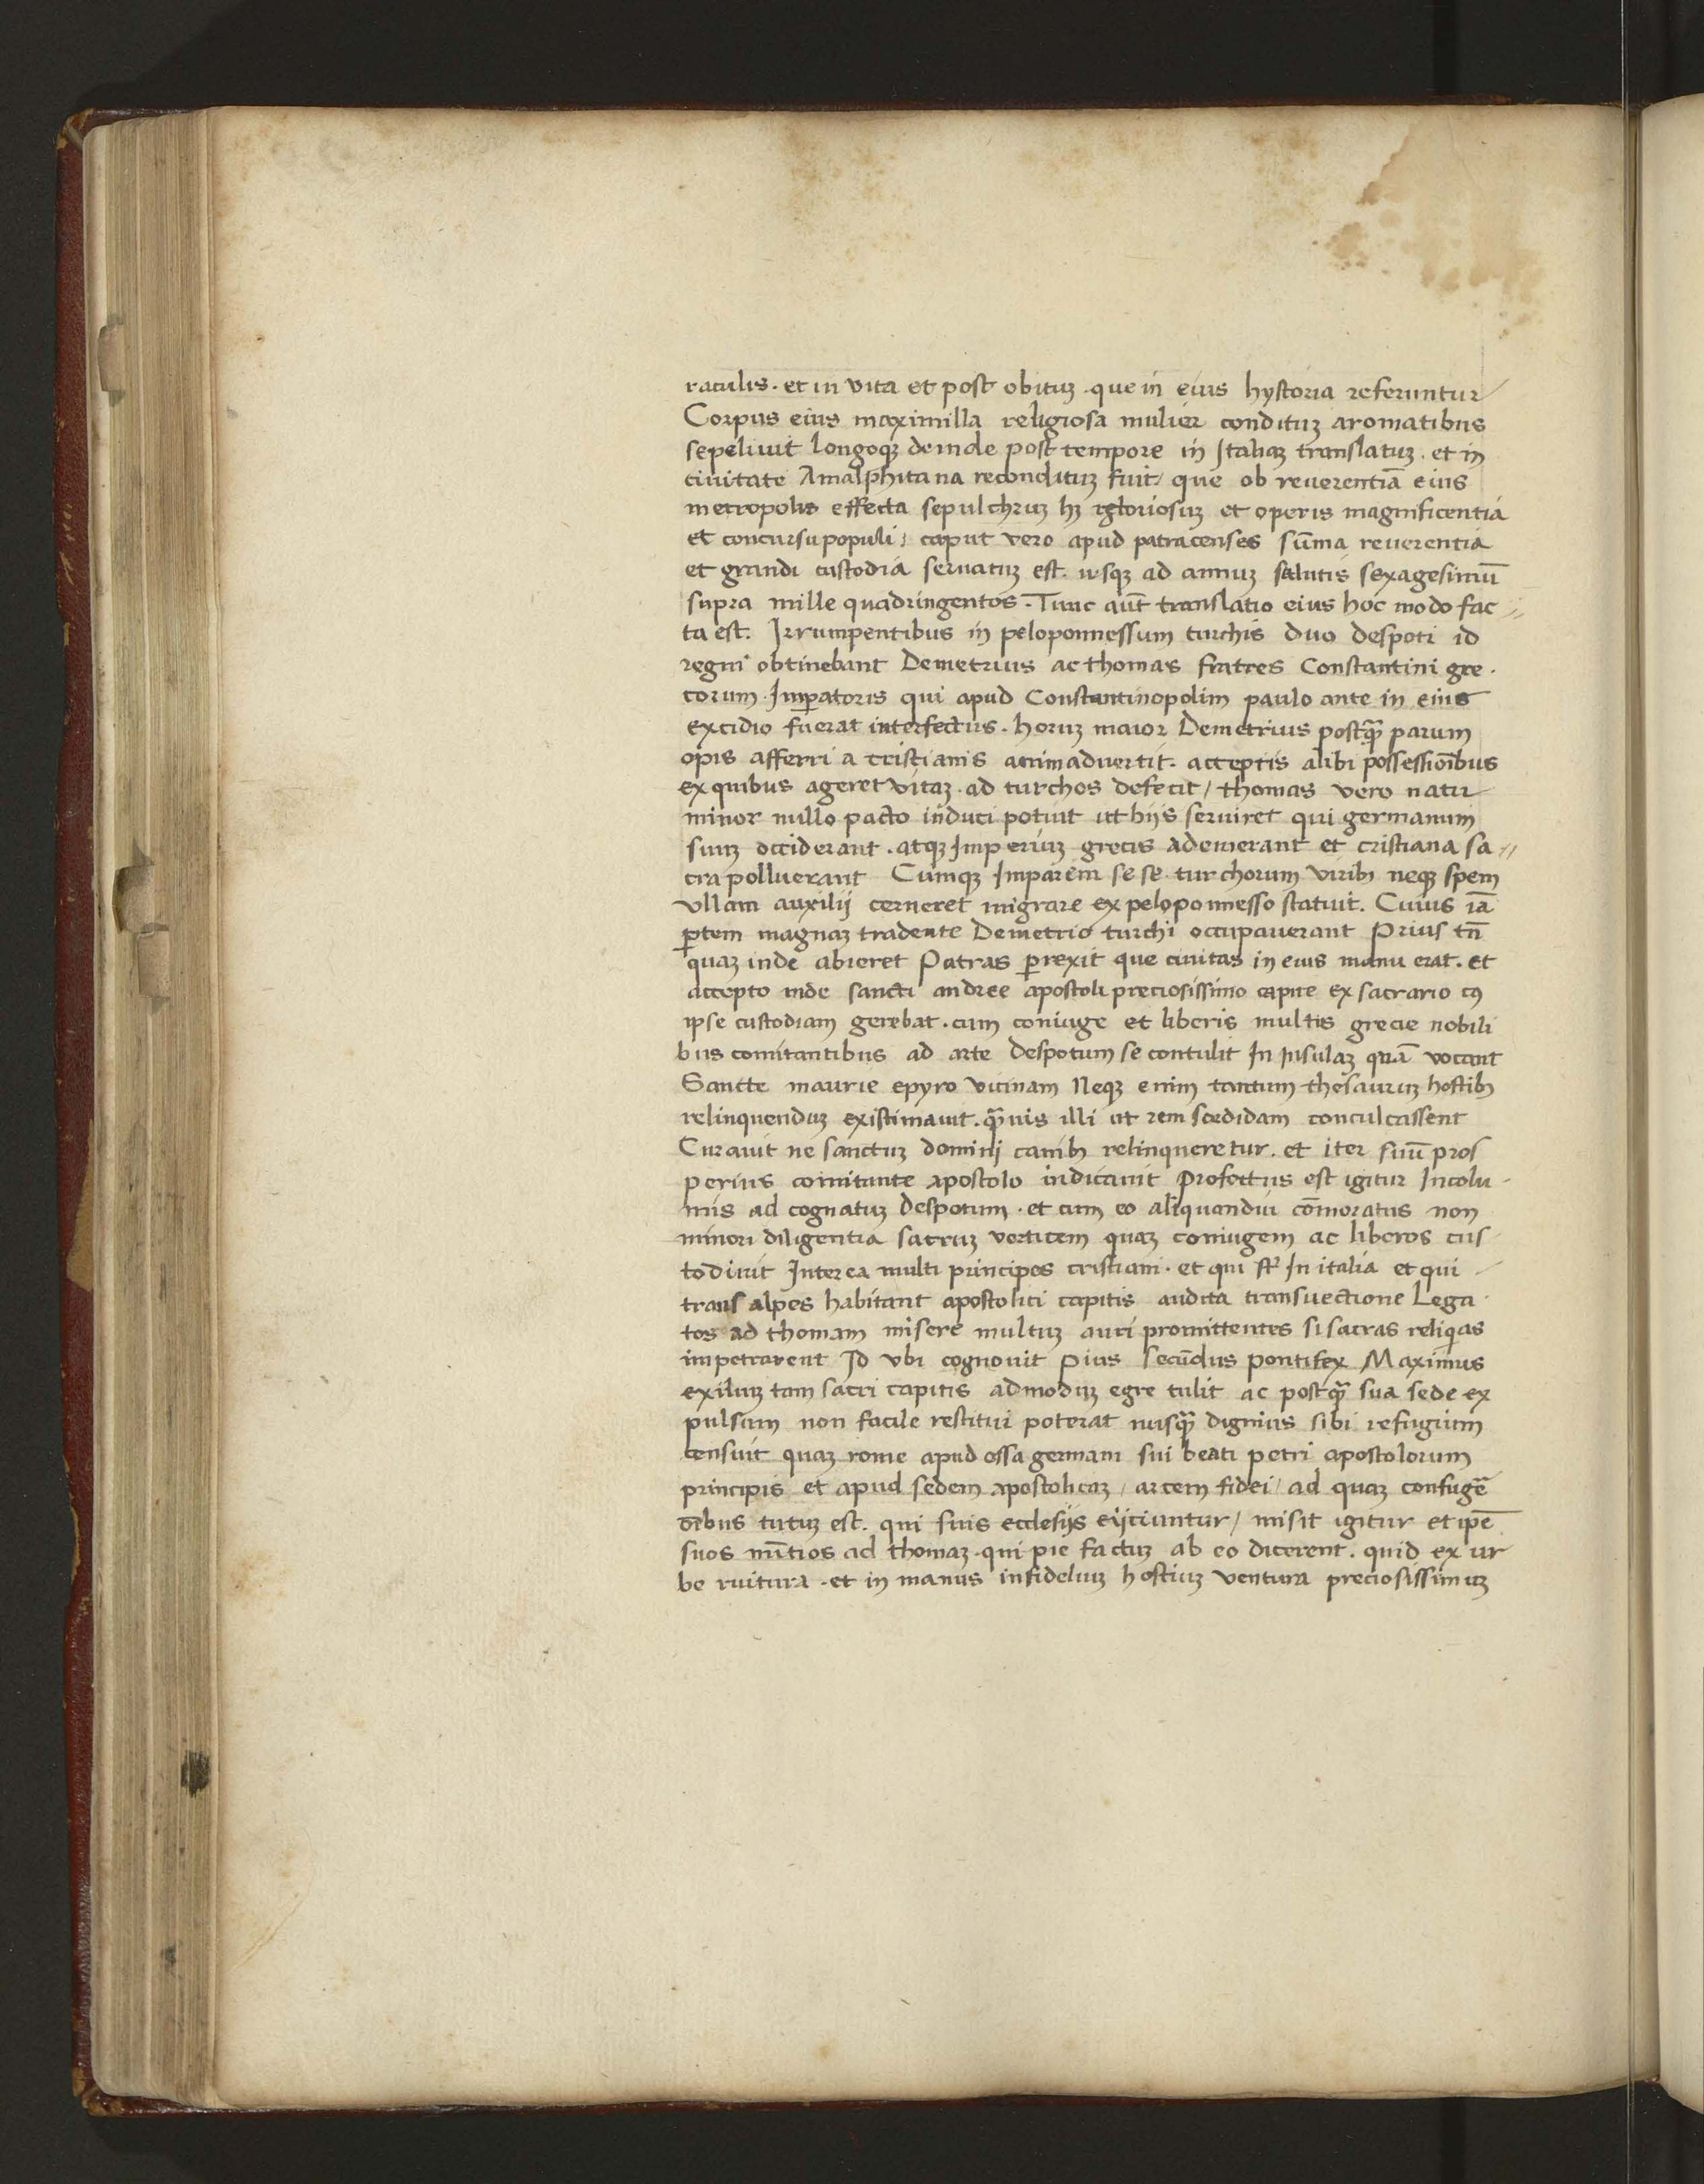 raculis · et in vita et post obituꝫ · que in eius hystoria referuntur
Corpus eius maximilla religiosa mulier condituꝫ aromatibus
sepeliuit longoqꝫ deinde post tempore in Italiaꝫ translatuꝫ · et in
ciuitate Amalphitana recondituꝫ fuit / que ob reuerentiā eius
metropolis effecta sepulchruꝫ hꝫ gloriosuꝫ et operis magnificentia
et concursu populi / caput vero apud patracenses sūma reuerentia
et grandi custodia seruatuꝫ est. usqꝫ ad annuꝫ salutis sexagesimū
supra mille quadringentos · Tunc aūt translatio eius hoc modo fac
ta est. Irrumpentibus in peloponnessum turchis duo despoti id
regni obtinebant Demetrius ac thomas fratres Constantini gre ·
corum · Imꝑatoris qui apud Constantinopolim paulo ante in eius
excidio fuerat interfectus · horuꝫ maior Demetrius postqꝫ̄ parum
opis afferri a cristianis animaduertit · acceptis alibi possessiōibus
ex quibus ageret vitaꝫ · ad turchos defecit / thomas vero natu
minor nullo pacto induci potuit ut hijs seruiret qui germanum
suuꝫ occiderant · atqꝫ Imperiuꝫ grecis ademerant et cristiana sa〃
cra polluerant Cumqꝫ Imparem se se turchorum viribꝫ neqꝫ spem
vllam auxilij cerneret migrare ex peloponnesso statuit. Cuius iā
ꝑtem magnaꝫ tradente Demetrio turchi occupauerant Prius tn̄
quaꝫ inde abieret Patras ꝑrexit que ciuitas in eius manu erat · et
accepto inde sancti andree apostoli preciosissimo capite ex sacrario cꝰ
ipse custodiam gerebat · cum coniuge et liberis multis grecie nobili
bus comitantibus ad arte despotum se contulit In Insulaꝫ quā vocant
Sancte maurie epyro vicinam Neqꝫ enim tantum thesauruꝫ hostibꝫ
relinquenduꝫ existimauit · qꝫ̄uis illi ut rem sordidam conculcassent
Curauit ne sanctuꝫ domini canibꝫ relinqueretur · et iter suū pros
perius comitante apostolo iudicauit Profectus est igitur Incolu -
mis ad cognatuꝫ despotum · et cum eo aliquandui cōmoratus non
minori diligentia sacruꝫ verticem quaꝫ coniugem ac liberos cus -
todiuit Interea multi principes cristiani · et qui st̄ In italia et qui -
trans alpes habitant apostolici capitis audita transuectione Lega ·
tos ad thomam misere multuꝫ auri promittentes si sacras reliqias
impetrarent Id vbi cognouit Pius secūdus pontifex Maximus
exiliuꝫ tam sacri capitis admoduꝫ egre tulit ac postqꝫ̄ sua sede ex
pulsum non facile restitui poterat nusqꝫ̄ dignius sibi refugium
censuit quaꝫ rome apud ossa germani sui beati petri apostolorum
principis et apud sedem apostolicaꝫ / arcem fidei / ad quaꝫ confugē
oībus tutuꝫ est. qui suis ecclesijs eijciuntur / misit igitur et ipē
suos nūtios ad thomaꝫ · qui pie factuꝫ ab eo dicerent · quid ex ur
be ruitura · et in manus infideliuꝫ hostiuꝫ ventura preciosissimuꝫ